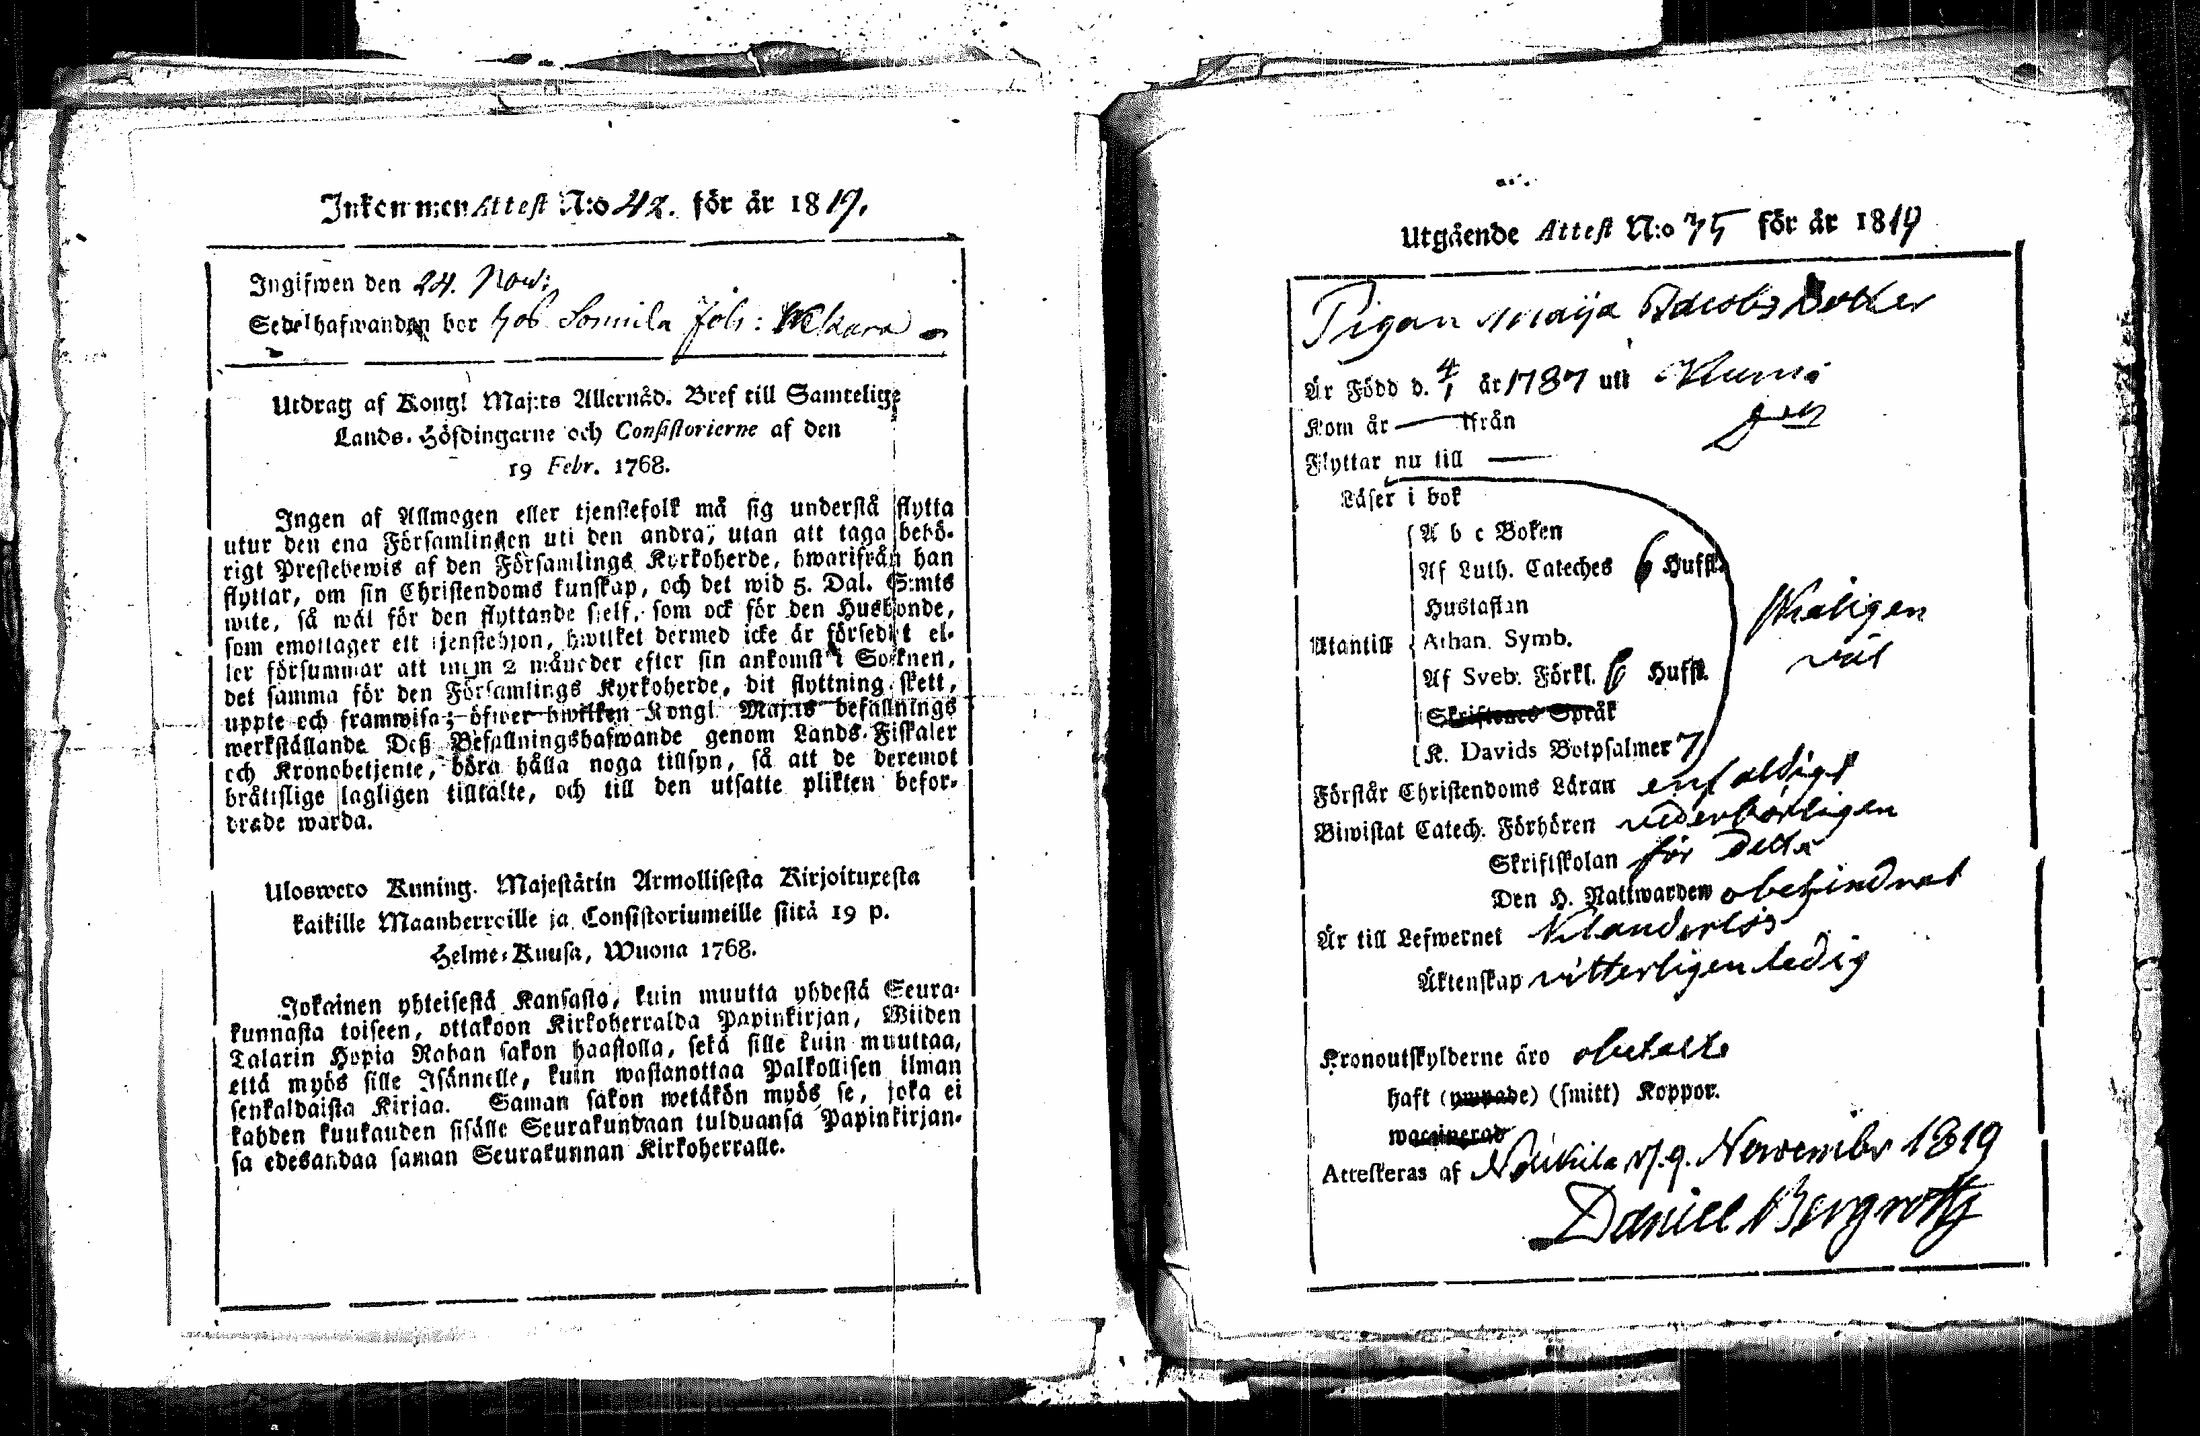 Inkommen Attest N:o 42. för år 1819.
Ingifwen den 24. Nov:
Sedelhafwanden bor hos Somila Joh:
Utdrag af Kongl Maj:ts Allernåd. Bref till Samtelige
Lands-Höfdingarne och Consistorierne af den
19 Febr. 1768.
Ingen af Allmogen eller tjenstefolk må sig understå flytta
utur den ena Församlingen uti den andra, utan att taga behö-
rigt Prestebewis af den Församlings Kyrkoherde, hwarifrån han
flyttar, om sin Christendoms kunskap, och det wid 5. Dal. S:mts
wite, så wäl för den flyttande sjelf, som ock för den Husbonde,
som emottager ett tjenstehjon, hwilket dermed icke är försedt el-
ler försummar att inom 2 månader efter sin ankomst i Socknen,
det samma för den Församlings Kyrkoherde, dit flyttning skett,
uppte och framwisa; öfwer hwilken Kongl. Maj:ts befallnings
werkställande Deß Befallningshafwande genom Lands-Fiskaler
och Kronobetjente, böra hålla noga tillsyn, så att de deremot
bråttslige lagligen tilltalte, och till den utsatte plikten befor-
drade warda.
Ulosweto Kuning. Majestätin Armollisesta Kirjoituxesta
kaikille Maanherroille ja Consistoriumeille siitä 19 p.
Helme-Kuusa, Wuona 1768.
Jokainen yhteisestä Kansasta, kuin muutta yhdestä Seura-
kunnasta toiseen, ottakoon Kirkoherralda Papinkirjan, Wiiden
Talarin Hopia Rahan sakon haastolla, sekä sille kuin muuttaa,
että myös sille Isännelle, kuin wastanottaa Palkollisen ilman
senkaldaista Kirjaa. Saman sakon wetäkön myös se, joka ei
kahden kuukauden sisälle Seurakundaan tulduansa Papinkirjan-
sa edesandaa saman Seurakunnan Kirkoherralle.
Utgående Attest N:o 35 för år 1819
Pigan Maija Jacobs Dotter
Är Född d. 4/1 år 1787 uti
Kom år — ifrån
Flyttar nu till —
Läser i bok
A b c Boken
Af Luth. Cateches 6 Hufst.
Hustaflan
Utantill Athan. Symb.
Af Sveb. Förkl. 6 Hufst.
Skriftenes Språk
K. Davids Botpsalmer 7
wäl
Förstår Christendoms Läran enfaldigt
Biwistat Catech. Förhören vederbörligen
Skriftskolan för detta
Den H. Nattwarden obehindrat
Är till Lefwernet Klanderlös
Äktenskap vitterligen ledig
Kronoutskylderne äro obetalte
haft (ympade) (smitt) Koppor.
waccinerad
Attesteras af d. 9. November 1819
Daniel Bergroth